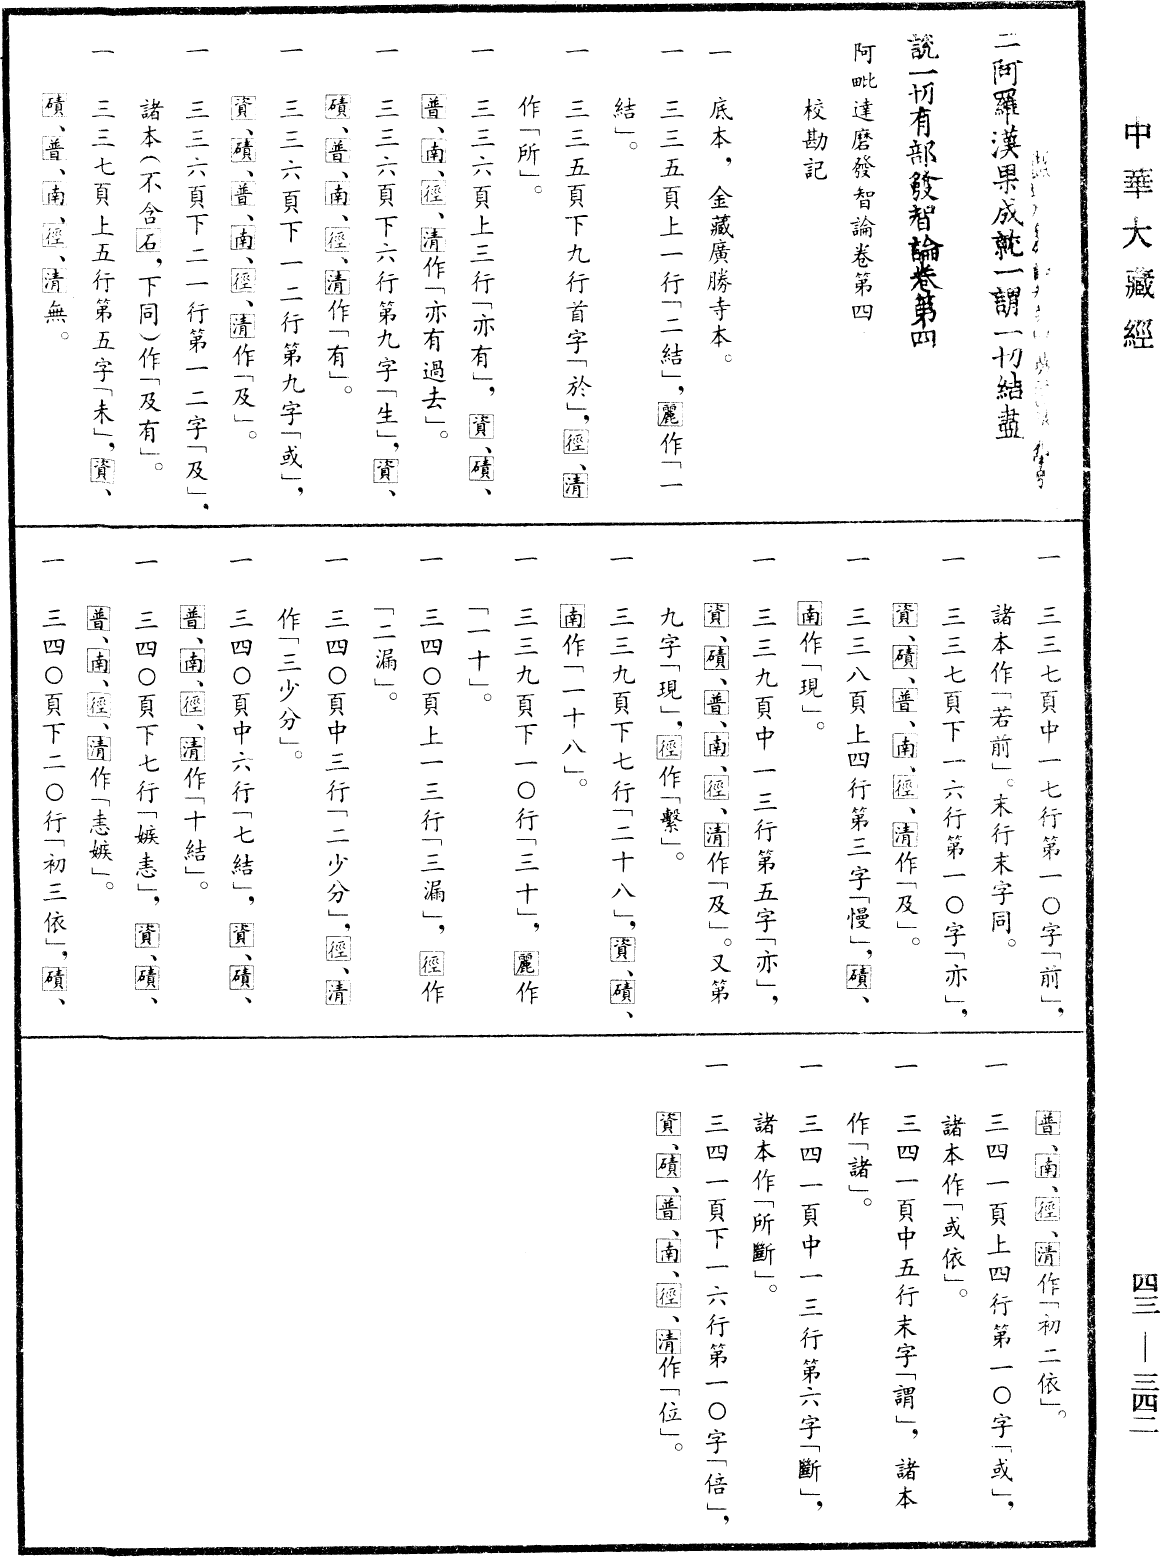 中華大藏經
二阿羅漢果成就一謂一切結盡
說一切有部發智論卷第四
阿毗達磨發智論卷第四
校勘記
一　底本，金藏廣勝寺本。
一　三三五頁上一行「二結」，麗作「一
結」。
一　三三五頁下九行首字「於」，徑、清
作「所」。
一　三三六頁上三行「亦有」，資、磧、
普、南、徑、清作「亦有過去」。
一　三三六頁下六行第九字「生」，資、
磧、普、南、徑、清作「有」。
一　三三六頁下一二行第九字「或」，
資、磧、普、南、徑、清作「及」。
一　三三六頁下二一行第一二字「及」，
諸本（不含石，下同）作「及有」。
一　三三七頁上五行第五字「未」，資、
磧、普、南、徑、清無。
一　三三七頁中一七行第一〇字「前」，
諸本作「若前」。末行末字同。
一　三三七頁下一六行第一〇字「亦」，
資、磧、普、南、徑、清作「及」。
一　三三八頁上四行第三字「慢」，磧、
南作「現」。
一　三三九頁中一三行第五字「亦」，
資、磧、普、南、徑、清作「及」。又第
九字「現」，徑作「繫」。
一　三三九頁下七行「二十八」，資、磧、
南作「一十八」。
一　三三九頁下一〇行「三十」，麗作
「一十」。
一　三四〇頁上一三行「三漏」，徑作
「二漏」。
一　三四〇頁中三行「二少分」，徑、清
作「三少分」。
一　三四〇頁中六行「七結」，資、磧、
普、南、徑、清作「十結」。
一　三四〇頁下七行「嫉恚」，資、磧、
普、南、徑、清作「恚嫉」。
一　三四〇頁下二〇行「初三依」，磧、
普、南、徑、清作「初二依」。
一　三四一頁上四行第一〇字「或」，
諸本作「或依」。
一　三四一頁中五行末字「謂」，諸本
作「諸」。
一　三四一頁中一三行第六字「斷」，
諸本作「所斷」。
一　三四一頁下一六行第一〇字「倍」，
資、磧、普、南、徑、清作「位」。
四三—三四二